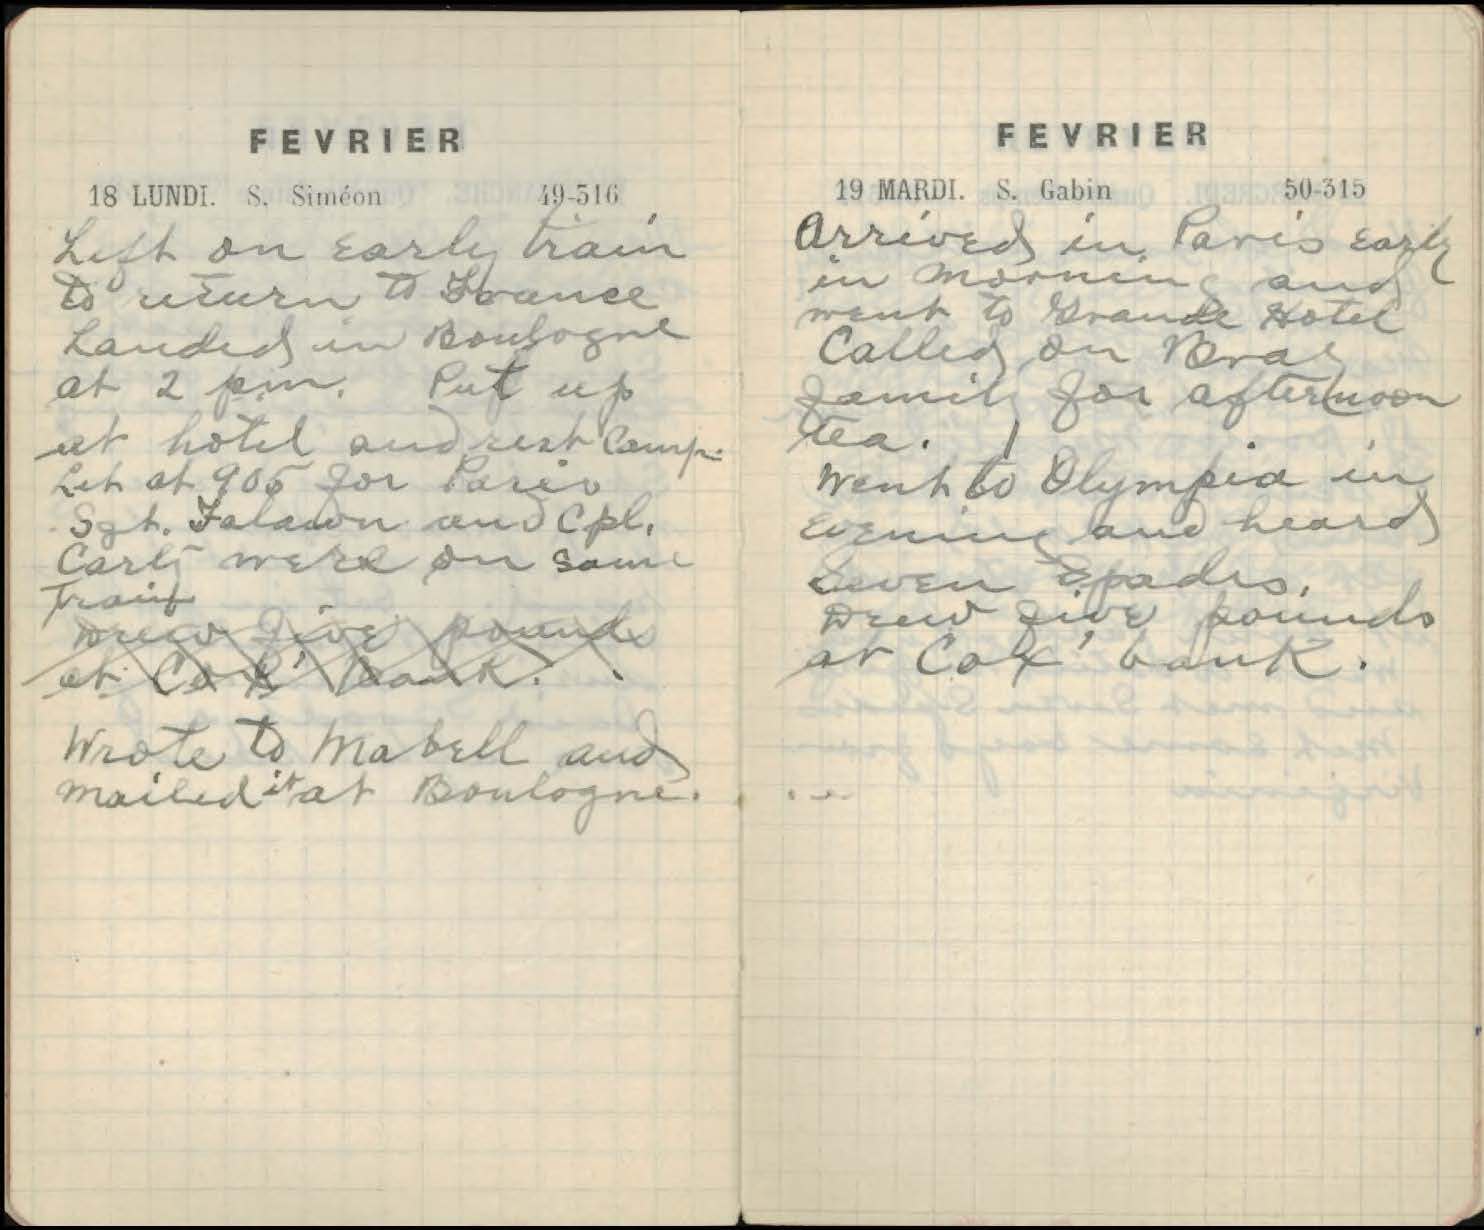 FEVRIER
18 LUNDI. S. Siméon 49-316
Left on early train
to return to France
Landed in Boulogne
at 2 p.m. Put up
at hotel and rest Camp.
Left at 905 for Paris
Sgt. and Cpl.
Carty were on same
train
Drew five pounds
at Cox' bank.
Wrote to Mabell and
mailed it at Boulogne.
FEVRIER
19 MARDI. S. Gabin 50-315
Arrived in Paris early
in morning and
went to Grande Hotel
Called on
family for afternoon
tea.
Went to Olympia in
evening and heard
Seven Spades.
Drew five pounds
at Cox' bank.